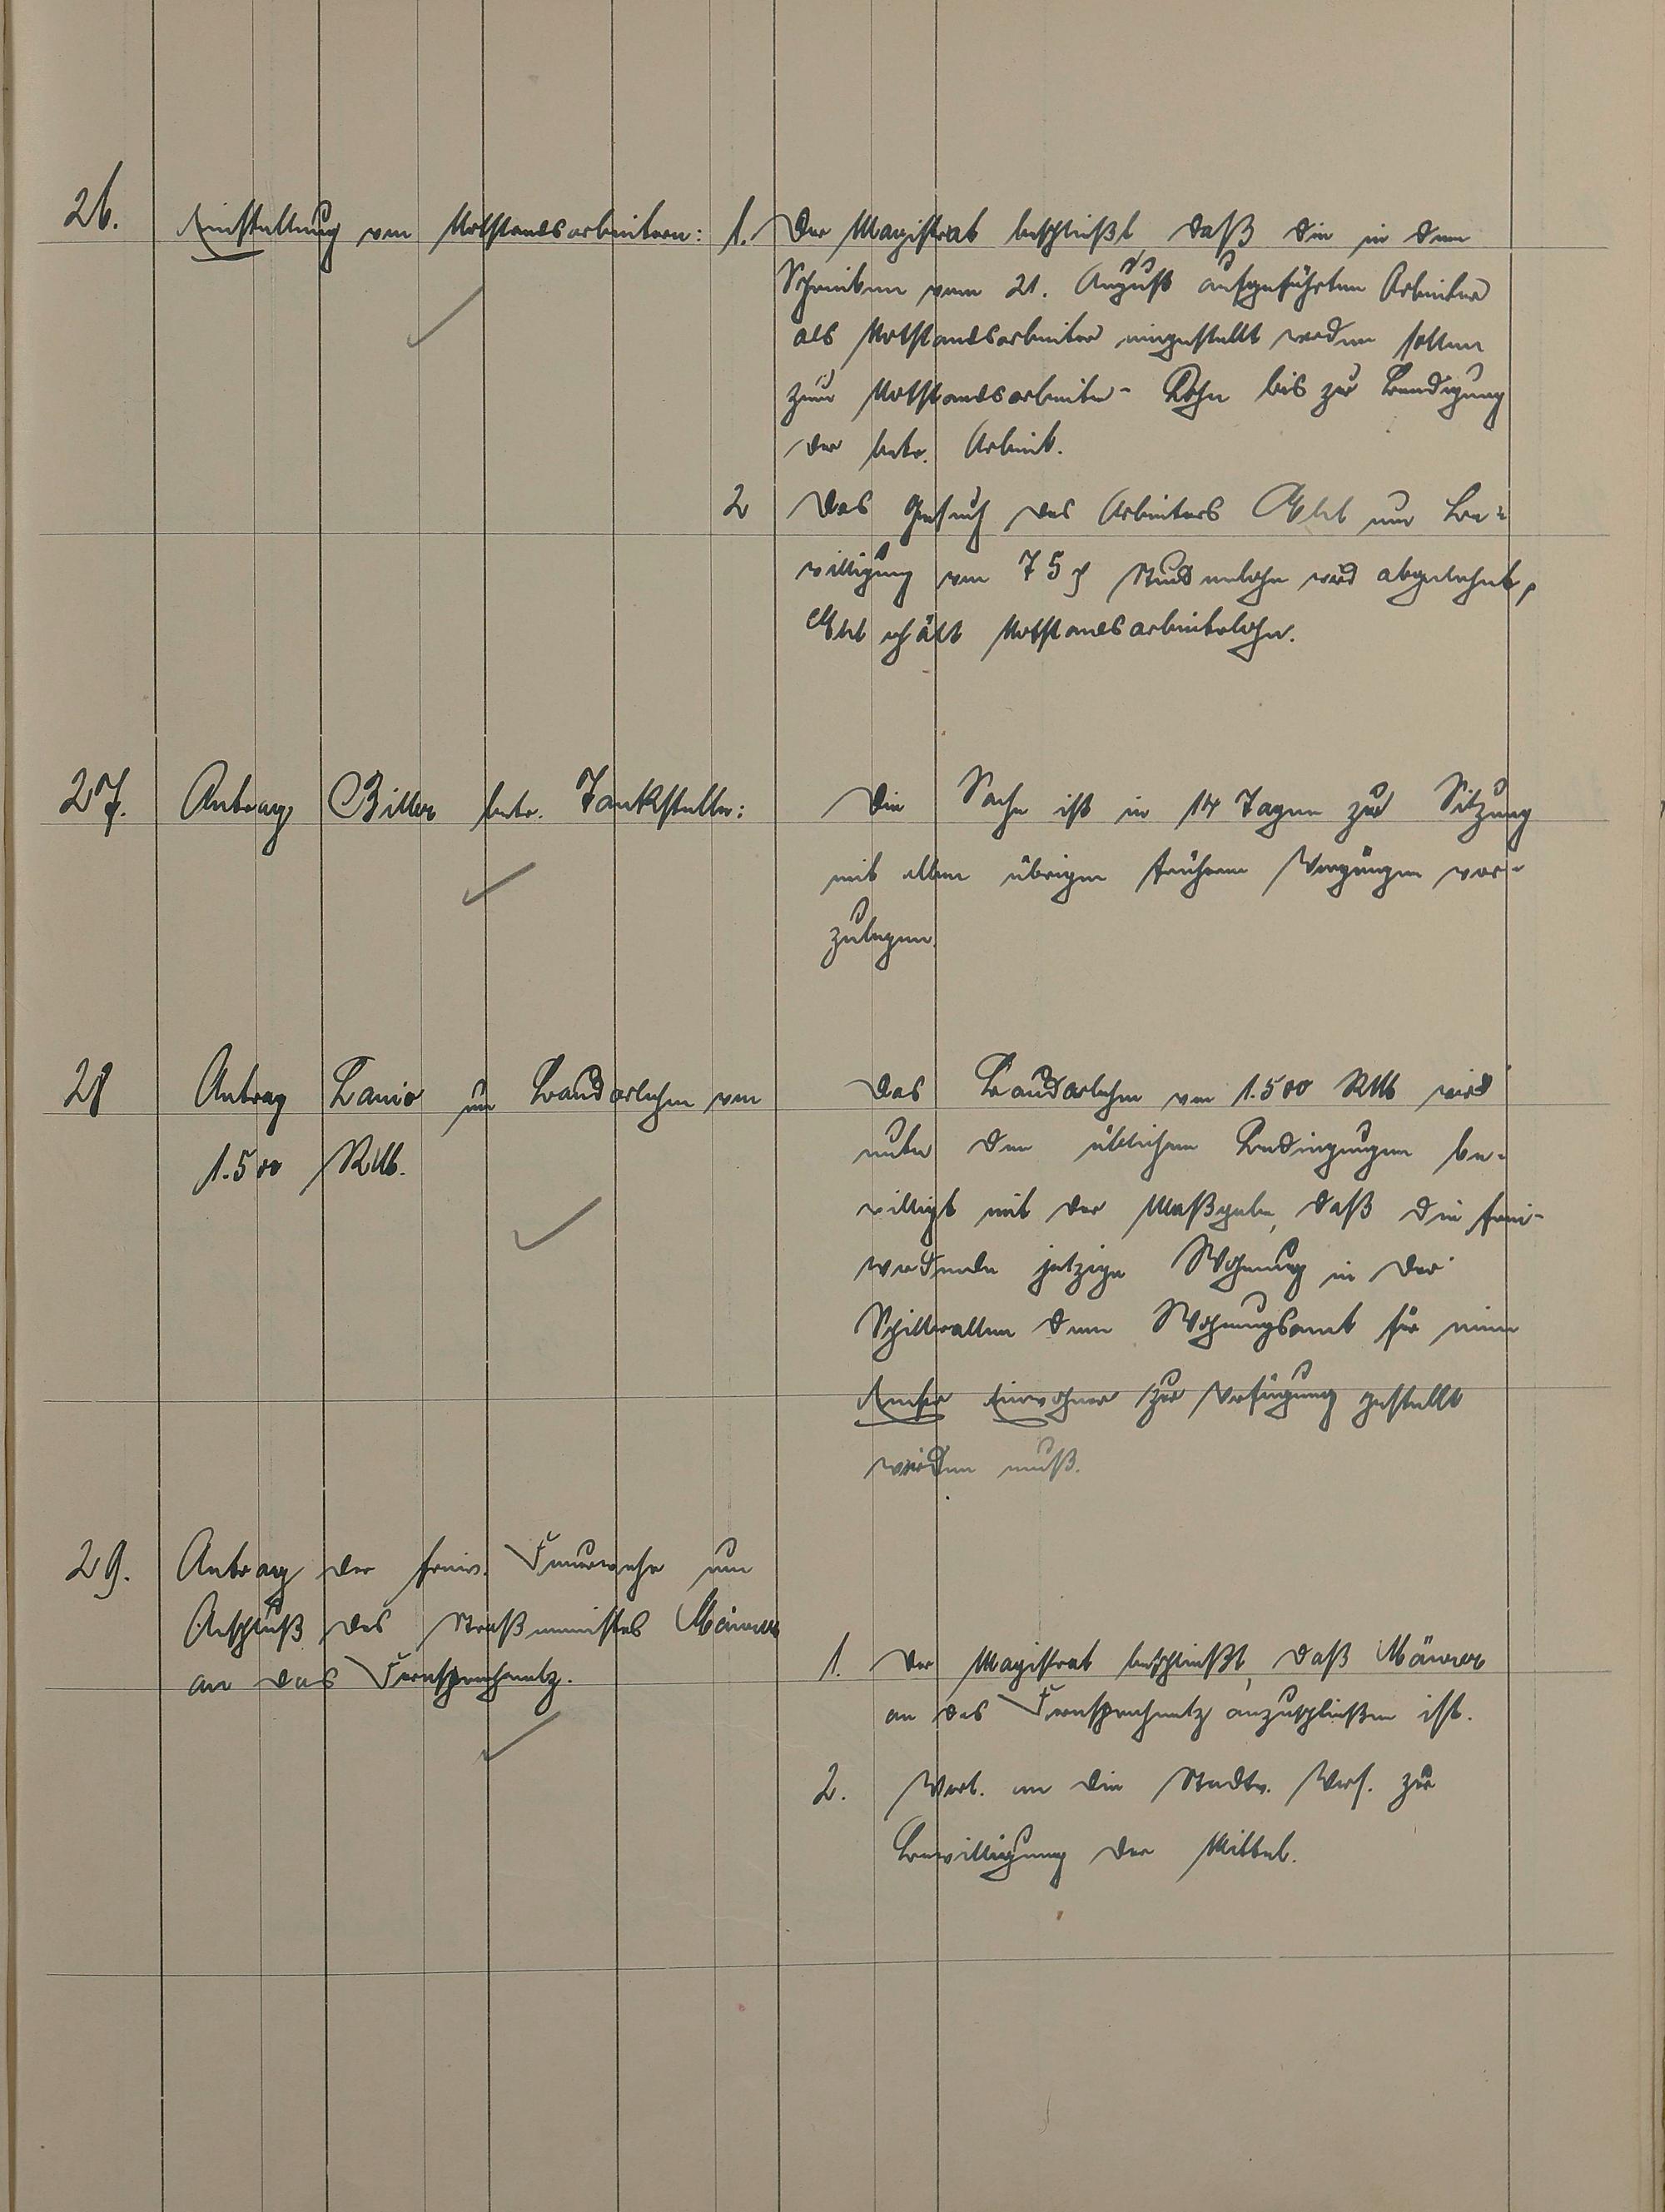 26. Einstellung von Notstandsarbeitern:
1. Der Magistrat beschließt, daß die in dem
Schreiben vom 21. August ds. aufgeführten Arbeiter
als Notstandsarbeiter eingestellt werden sollen
zum Notstandsarbeiter-Lohn bis zur Beendigung
der betr. Arbeit.
2 Das Gesuch des Arbeiters Ebel um Be-
willigung von 75 ₰ Stundenlohn wird abgelehnt,
Ebel erhält Notstandsarbeiterlohn.
27. Antrag Biller betr. Tankstelle:
Die Sache ist in 14 Tagen zur Sitzung
mit allen übrigen früheren Vorgängen vor-
zulegen.
28 Antrag Lanio um Baudarlehen von
1.500 RM.
Das Baudarlehen von 1.500 RM wird
unter den üblichen Bedingungen be-
willigt mit der Maßgabe, daß die frei-
werdende jetzige Wohnung in der
Schillerallee dem Wohnungsamt für einen
Emser Einwohner zur Verfügung gestellt
werden muß.
29. Antrag der freiw. Feuerwehr um
Anschluß des Brandmeisters
an das Fernsprechnetz.
1. Der Magistrat beschließt, daß
an das Fernsprechnetz anzuschließen ist.
2. Vorl. an die Stadtv. Vers. zur
Bewilligung der Mittel.